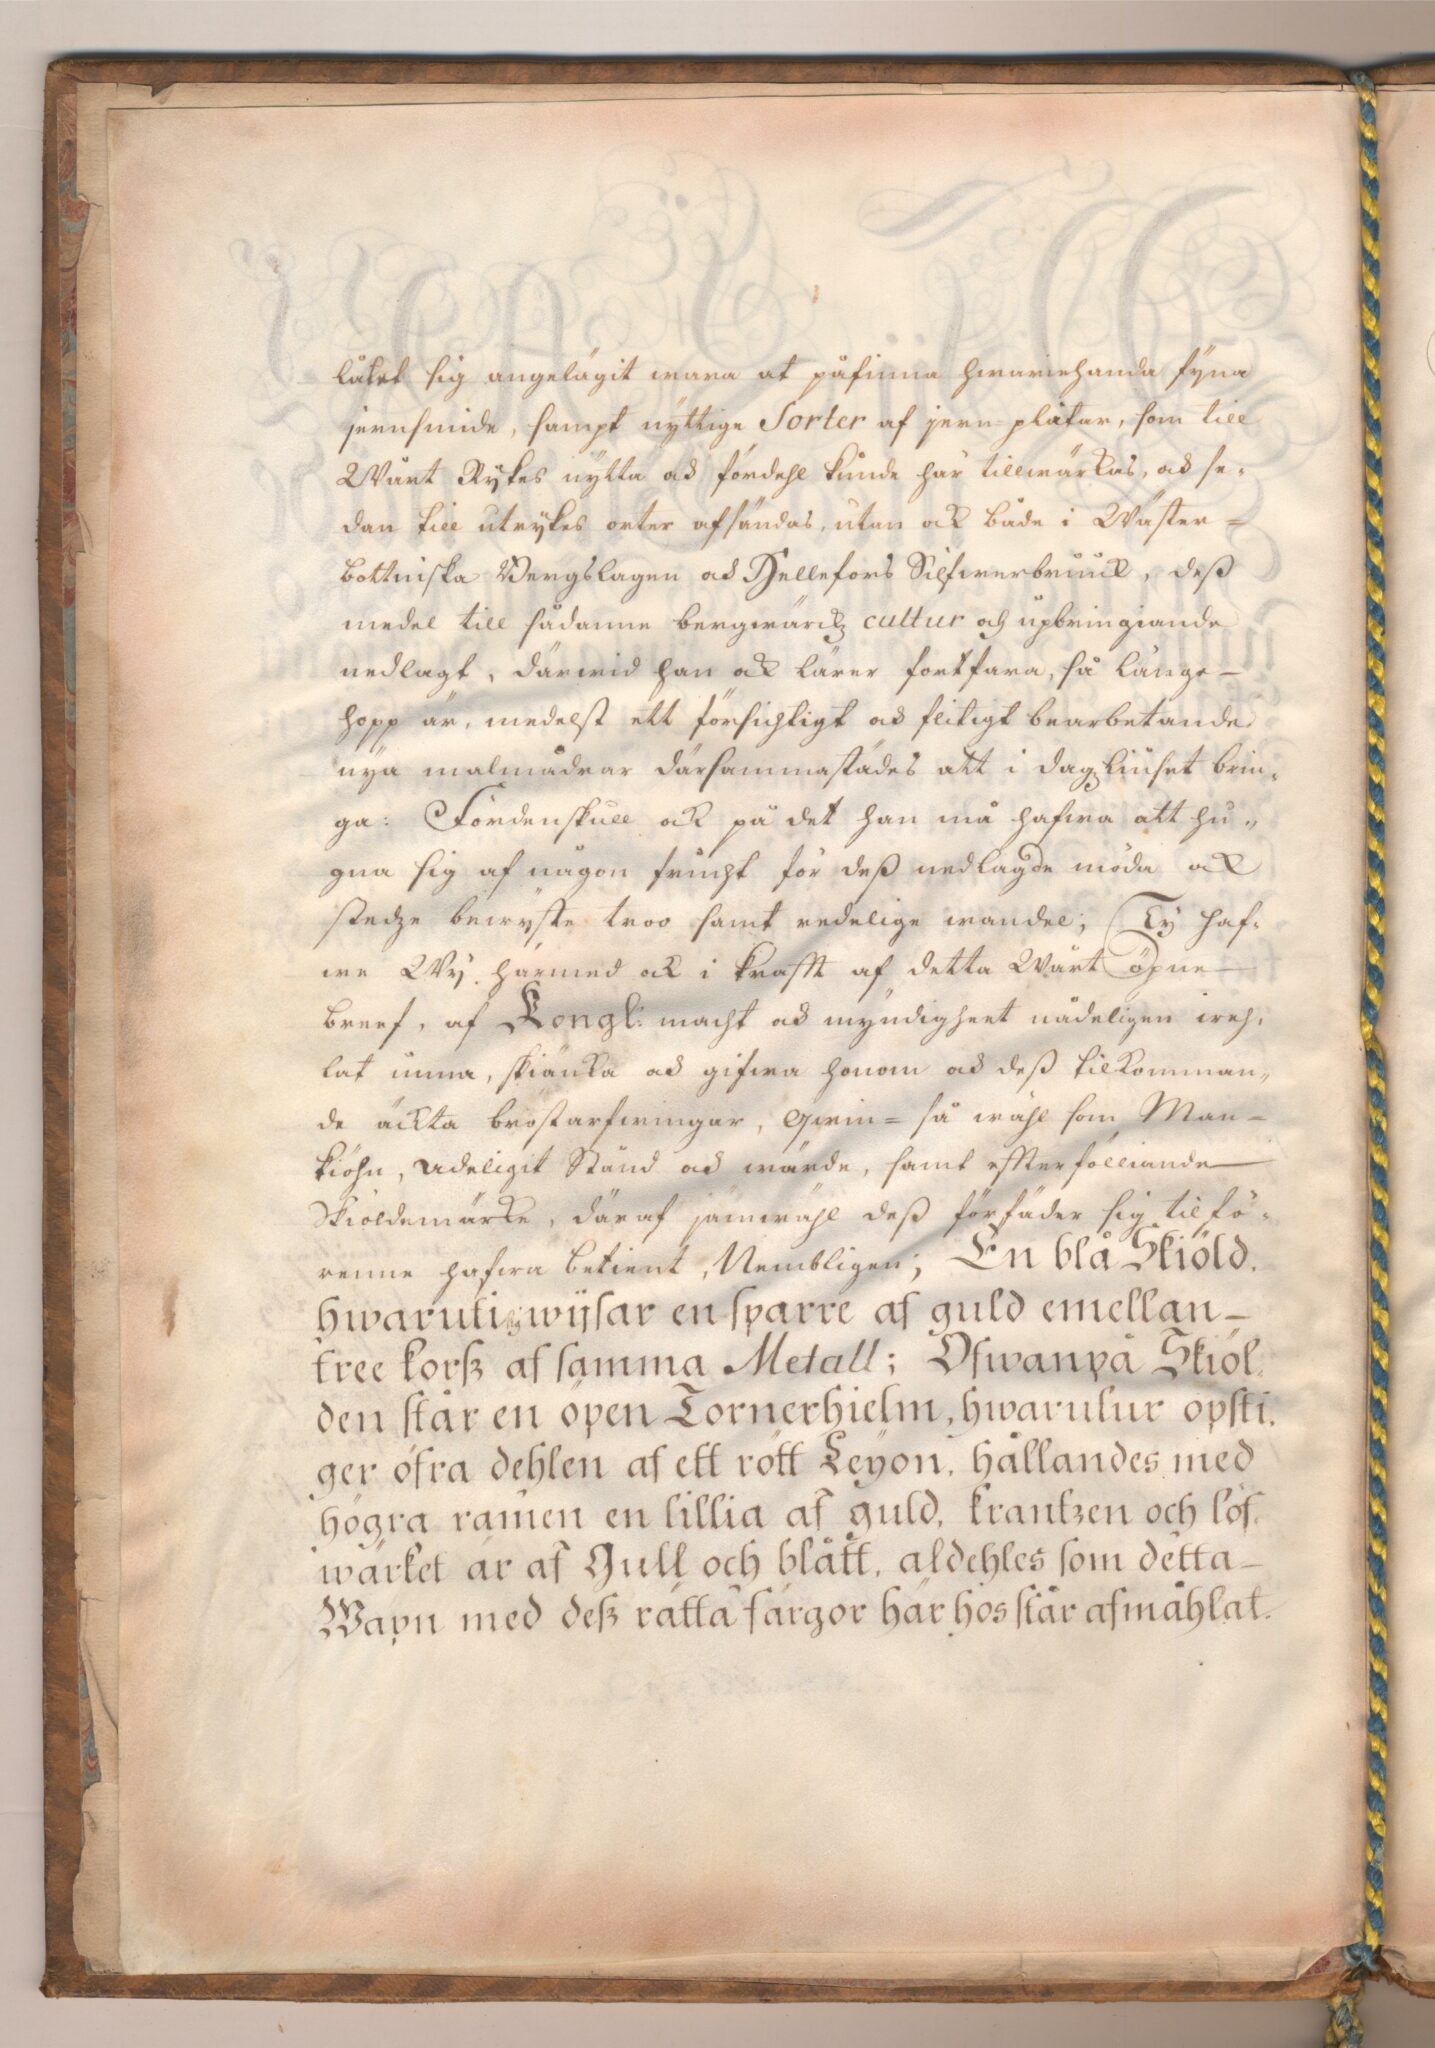 låtet sig angelägit wara at påfinna hwariehanda fyna
jernsmide, sampt nyttige Sorter af jern-plåtar, som till
Wårt Rykes nytta och fördehl kunde här tillwärkas, och se-
dan till utrykes orter afsändas, utan ock både i Wäster-
bottniska Bergslagen och Hellefors Silfwerbruuk, deß
medel till sådanne bergwärckz cultur och upbringiande
nedlagt, därwid han ock lärer fortfara, så länge
hopp är, medelst ett försichtigt och flitigt bearbetande
nya malmådrar därsammastädes att i dagzliuset brin-
ga: Fördenskull ock på det han må hafwa att hu-
gna sig af någon frucht för deß nedlagde möda och
stedze bewyste troo samt redelige wandel; Ty haf-
we Wy härmed ock i krafft af detta Wårt öpne
breef, af Kongl: macht och myndigheet nådeligen weh-
lat unna, skiäncka och gifwa honom och deß tilkomman-
de äckta bröstarfwingar, Qwin- så wähl som Man-
kiöhn, adeligit Stånd och wärde, samt effterfölliande
Skiöldemärke, däraf jämwähl deß förfäder sig tilfö-
renne hafwa betient, Nembligen; En blå Skiöld,
hwaruti wijsar en sparre af guld emellan
tree korß af samma Metall; Ofwanpå Skiöl-
den står en öpen Tornerhielm, hwarutur opsti-
ger öfra dehlen af ett rött Leyon, hållandes med
högra ramen en lillia af guld, krantzen och löf-
wärket är af Gull och blått, aldehles som detta
Wapn med deß rätta färgor här hos står afmåhlat.